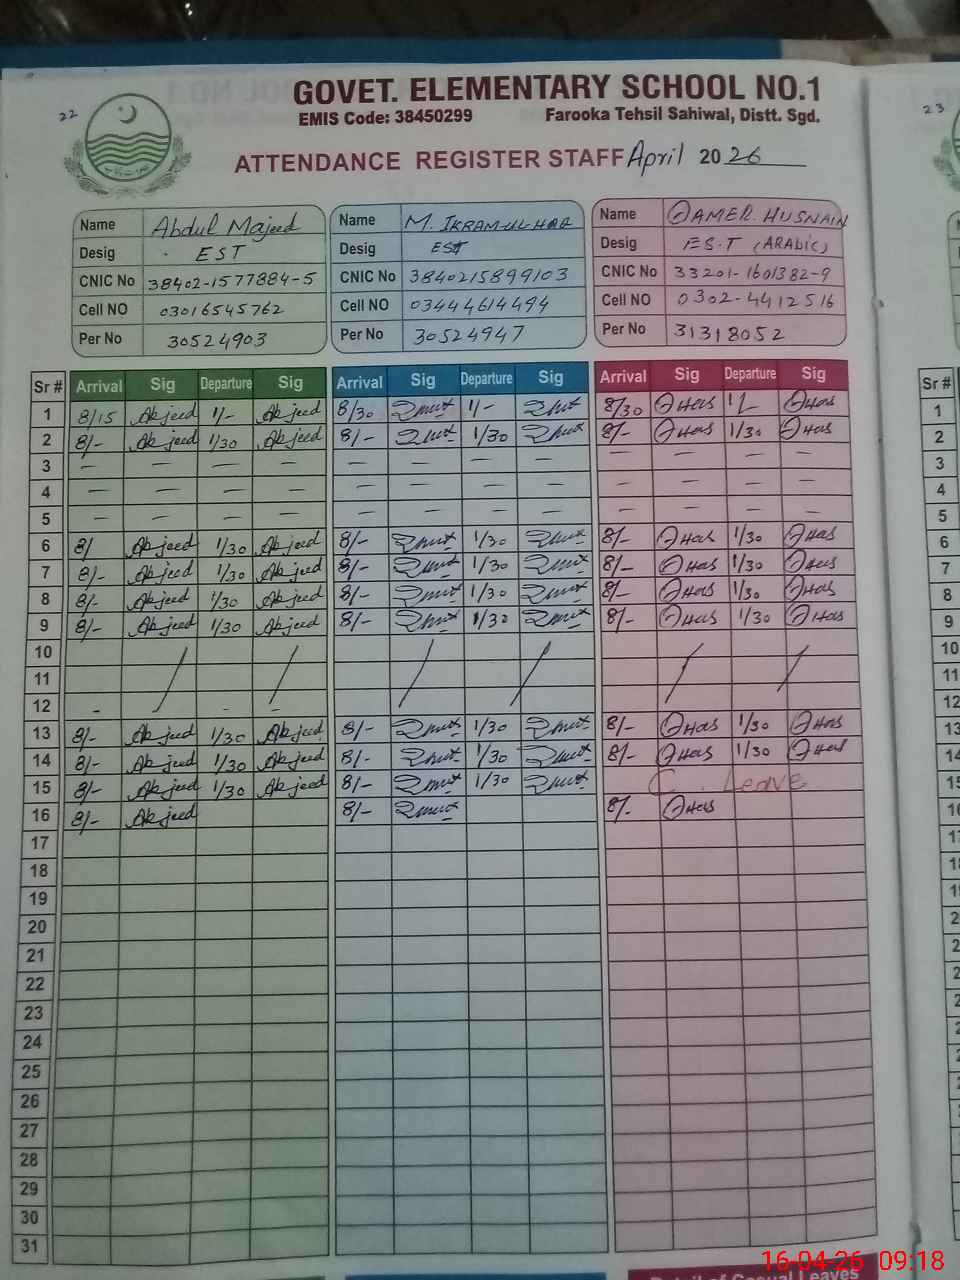 22
GOVET. ELEMENTARY SCHOOL NO.1
23
EMIS Code: 38450299 Farooka Tehsil Sahiwal, Distt. Sgd.
ATTENDANCE REGISTER STAFF April 2026
Name Abdul Majeed Name M. IKRAM-UL-HAQ Name QAMER. HUSNAIN
Desig EST Desig EST Desig E.S.T (ARABIC)
CNIC No 38402-1577884-5 CNIC No 3840215899103 CNIC No 33201-1601382-9
Cell NO 03016545762 Cell NO 03444614494 Cell NO 0302-4412516
Per No 30524903 Per No 30524947 Per No 31318052
Sr # Arrival Sig Departure Sig Arrival Sig Departure Sig Arrival Sig Departure Sig Sr #
1 8/15 Abjeed 1/- Abjeed 8/30 1/- 8/30 Qhas 1/- Qhas 1
2 8/- Abjeed 1/30 Abjeed 8/- 1/30 8/- Qhas 1/30 Qhas 2
3 — — — — — — — — — — — — 3
4 — — — — — — — — — — — — 4
5 — — — — — — — — — — — — 5
6 8/ Abjeed 1/30 Abjeed 8/- 1/30 8/- Qhas 1/30 Qhas 6
7 8/- Abjeed 1/30 Abjeed 8/- 1/30 8/- Qhas 1/30 Qhas 7
8 8/- Abjeed 1/30 Abjeed 8/- 1/30 8/- Qhas 1/30 Qhas 8
9 8/- Abjeed 1/30 Abjeed 8/- 1/30 8/- Qhas 1/30 Qhas 9
10 / / / / / / 10
11 11
12 - - 12
13 8/- Abjeed 1/30 Abjeed 8/- 1/30 8/- Qhas 1/30 Qhas 13
14 8/- Abjeed 1/30 Abjeed 8/- 1/30 8/- Qhas 1/30 Qhas 14
15 8/- Abjeed 1/30 Abjeed 8/- 1/30 C. Leave 15
16 8/- Abjeed 8/- 8/- Qhas 16
17
18
19
20
21
22
23
24
25
26
27
28
29
30
31
16-04-26 09:18
Detail of Casual Leaves